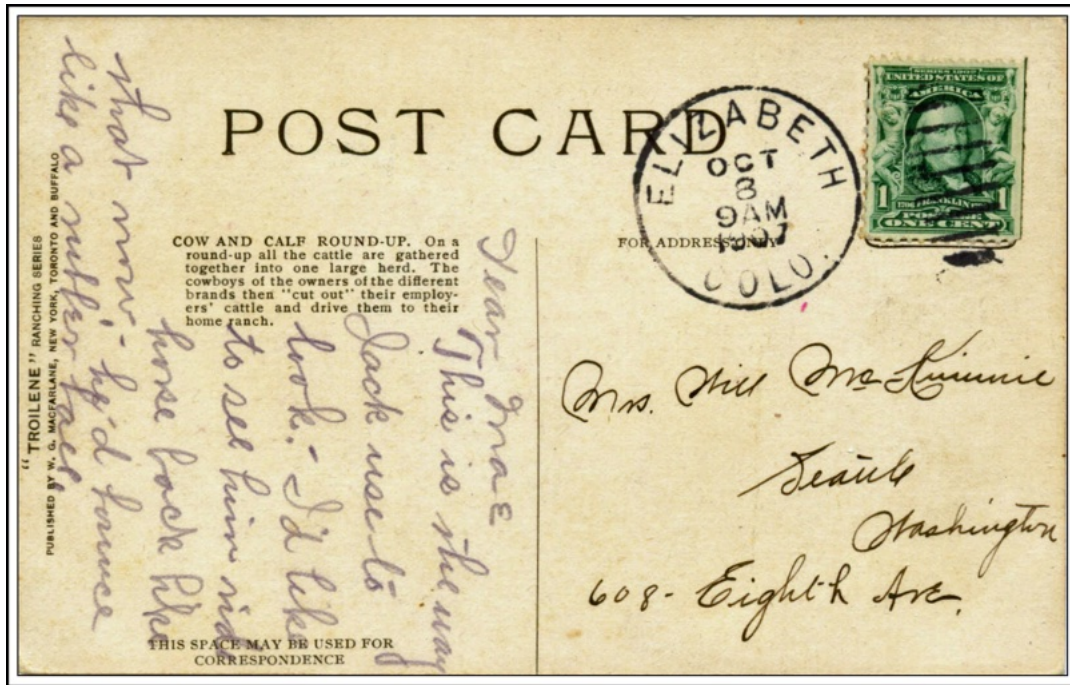 POST CARD
ELIZABETH
OCT
8
9AM
1907
COLO.
SERIES 1902
UNITED STATES OF
AMERICA
1 FRANKLIN 1
POSTAGE
ONE CENT
"TROILENE" RANCHING SERIES
PUBLISHED BY W. G. MACFARLANE, NEW YORK, TORONTO AND BUFFALO
COW AND CALF ROUND-UP. On a
round-up all the cattle are gathered
together into one large herd. The
cowboys of the owners of the different
brands then "cut out" their employ-
ers' cattle and drive them to their
home ranch.
FOR ADDRESS ONLY
Dear Mae
This is the way
Jack use to
look. - I'd like
to see him ride
horse back like
that now - he'd bounce
like a rubber ball
Mrs. Will McKimmie
Seattle
Washington
608 - Eighth Ave.
THIS SPACE MAY BE USED FOR
CORRESPONDENCE